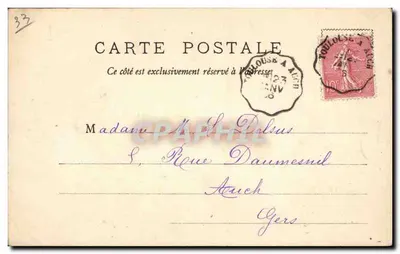 33
CARTE POSTALE
Ce côté est exclusivement réservé à l'adresse
TOULOUSE A AUCH
23
JANV
TOULOUSE A AUCH
Madame
5, Rue Daumesnil
Auch
Gers